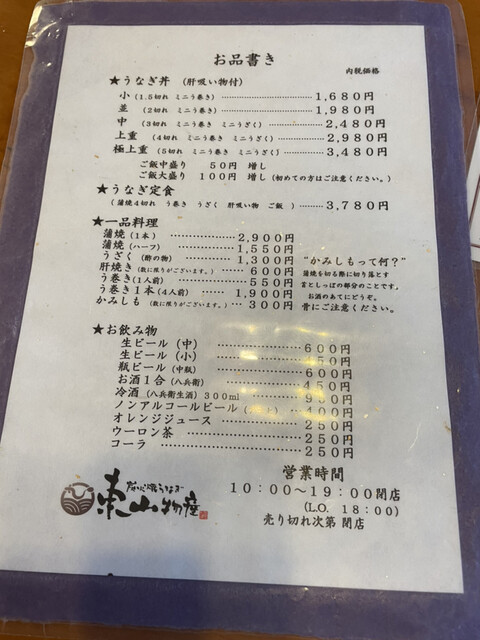 お品書き
内税価格
★うなぎ丼 (肝吸い物付)
小(1.5切れ ミニう巻き)……………………1,680円
並(2切れ ミニう巻き)……………………1,980円
中(3切れ ミニう巻き ミニうざく)……………2,480円
上重(4切れ ミニう巻き ミニうざく)…………2,980円
極上重(5切れ ミニう巻き ミニうざく)………3,480円
ご飯中盛り 50円 増し
ご飯大盛り 100円 増し(初めての方はご注意ください。)
★うなぎ定食
(蒲焼4切れ う巻き うざく 肝吸い物 ご飯)…………3,780円
★一品料理
蒲焼(1本)……………………2,900円
蒲焼(ハーフ)…………………1,550円
うざく(酢の物)………………1,300円
肝焼き(数に限りがございます。)……600円
う巻き(1人前)…………………550円
う巻き1本(4人前)……………1,900円
かみしも(数に限りがございます。)…300円
“かみしもって何?”
蒲焼を切る際に切り落とす
首としっぽの部分のことです。
お酒のあてにどうぞ。
骨にご注意ください。
★お飲み物
生ビール(中)……………………600円
生ビール(小)……………………450円
瓶ビール(中瓶)…………………600円
お酒1合(八兵衛)………………450円
冷酒(八兵衛生酒)300ml………950円
ノンアルコールビール…400円
オレンジジュース…………………250円
ウーロン茶…………………………250円
コーラ………………………………250円
営業時間
10:00~19:00閉店
(L.O. 18:00)
売り切れ次第 閉店
東山物産